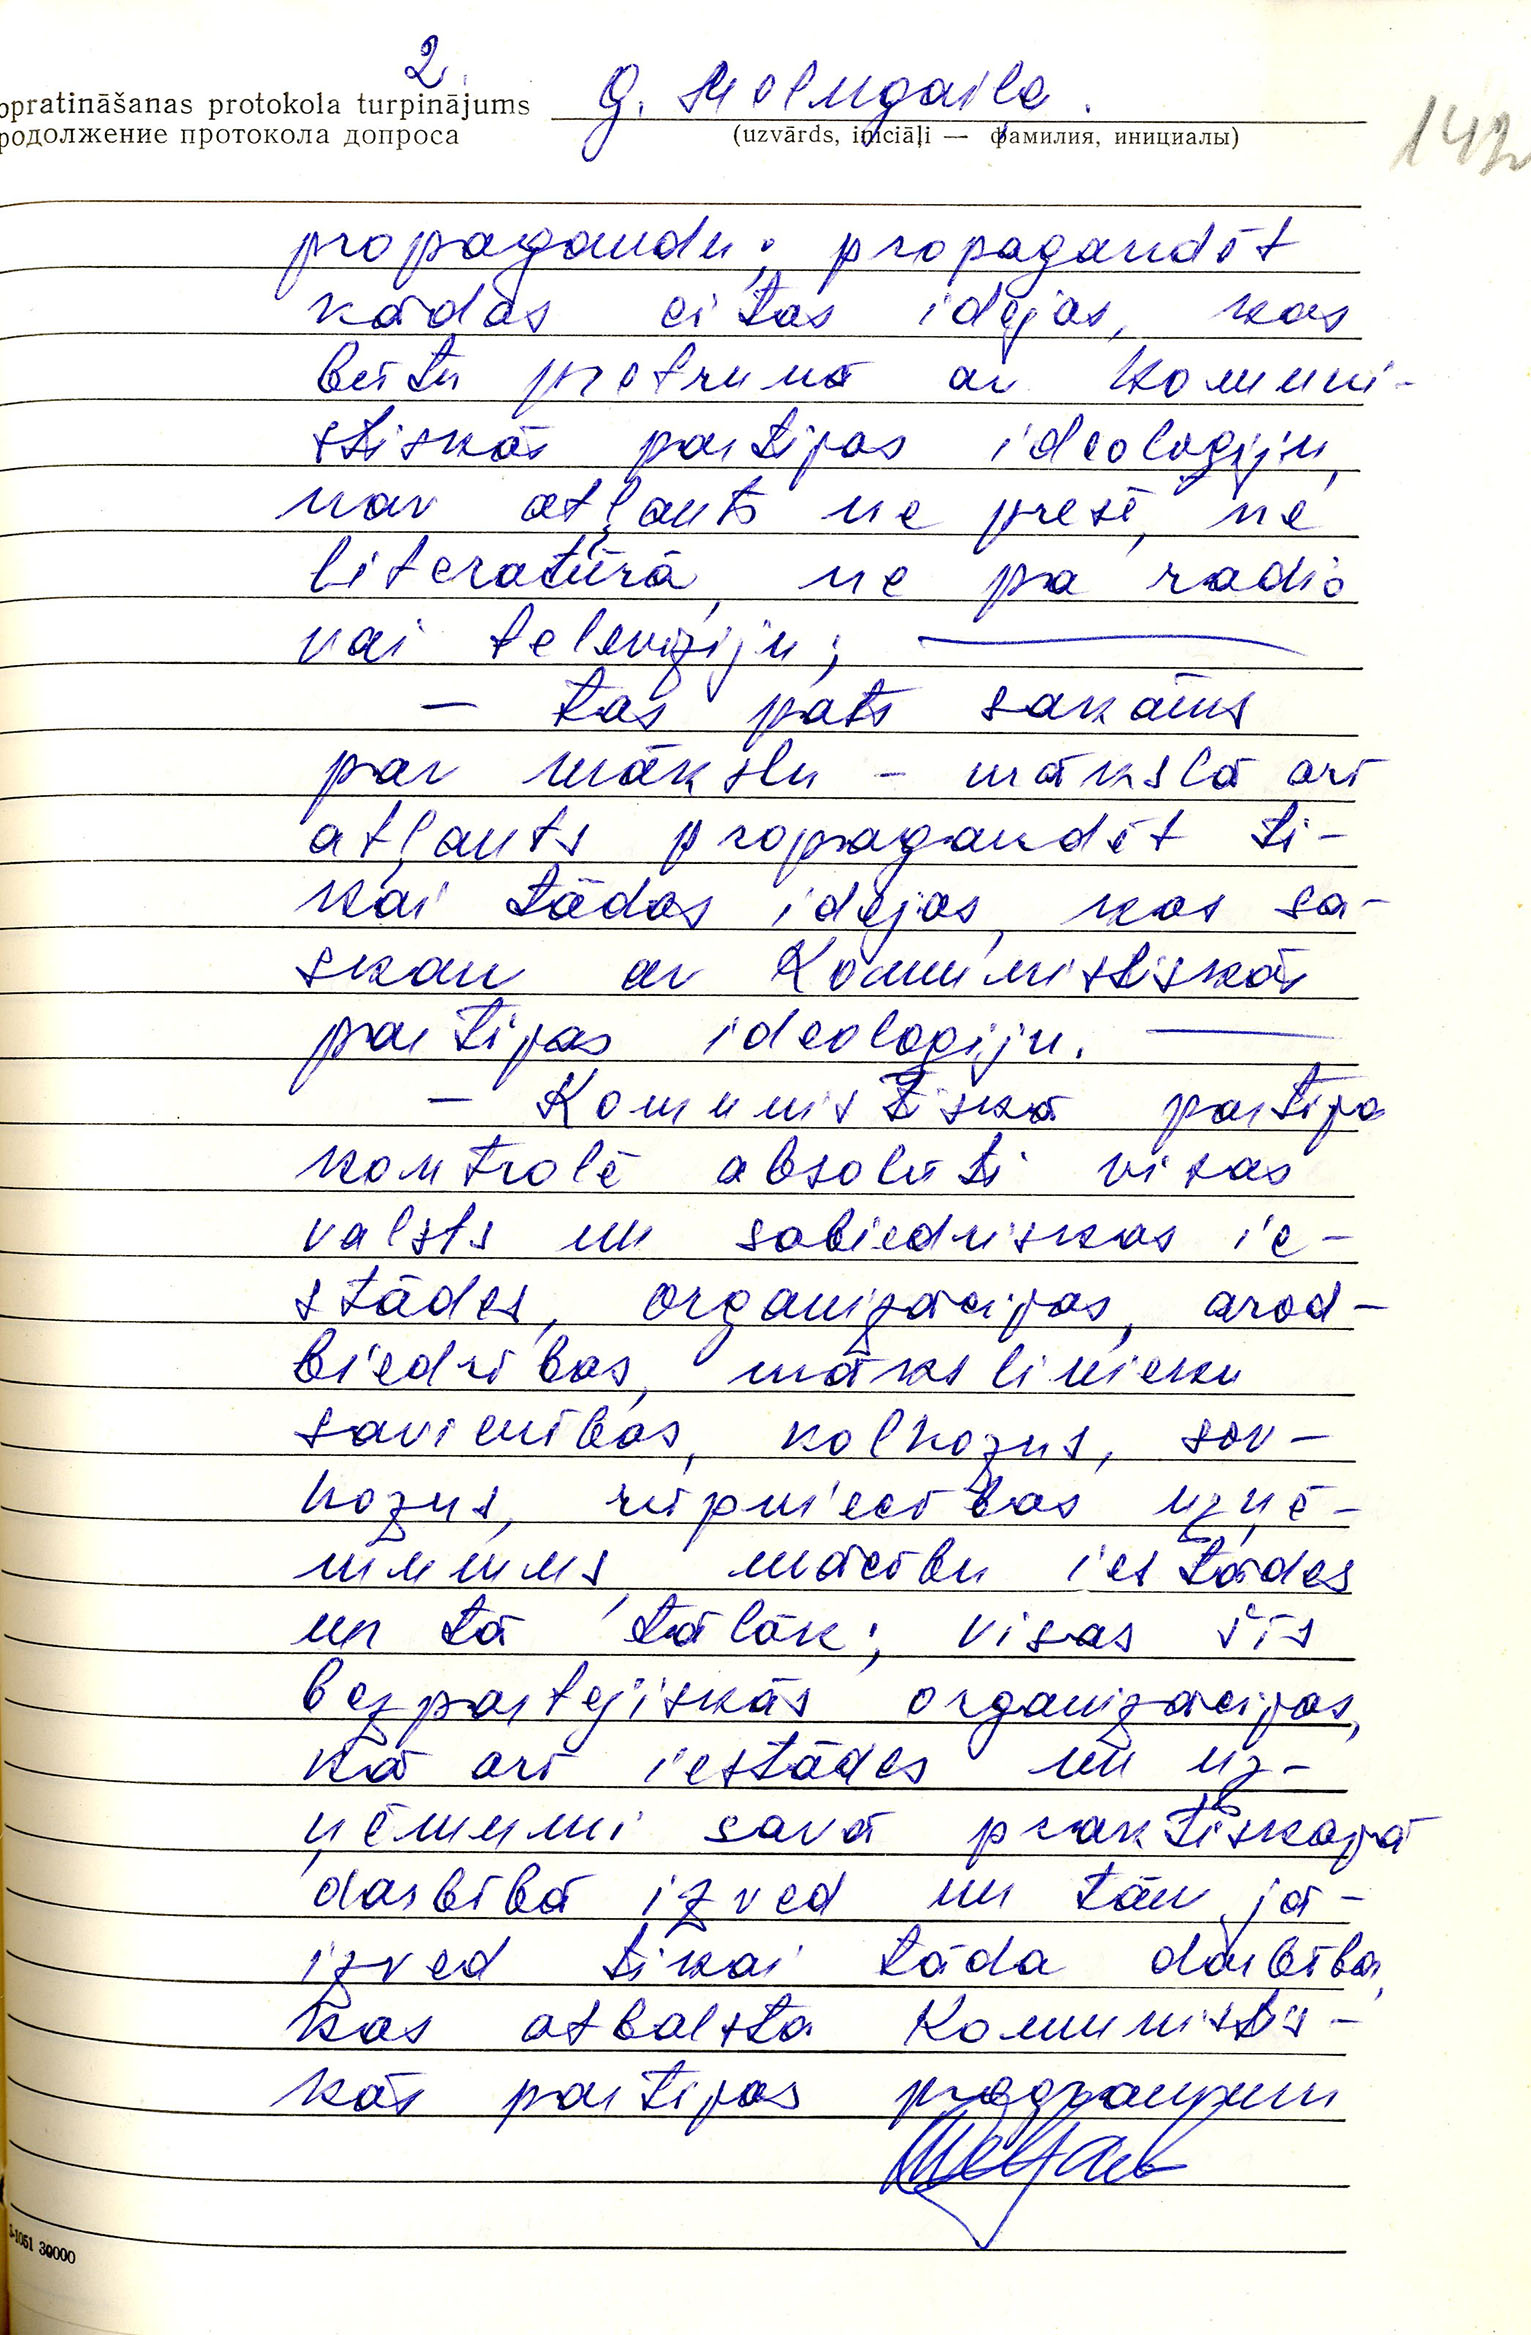 2.
opratināšanas protokola turpinājums G. Melngaile.
родолжение протокола допроса (uzvārds, iniciāļi — фамилия, инициалы)
propagandu; propagandēt
kādas citas idejas, kas
būtu pretrunā ar Komuni-
stiskās partijas ideoloģiju,
nav atļauts ne presē, ne
literatūrā, ne pa radio
vai televīziju;
— tas pats sakāms
par mākslu – mākslā arī
atļauts propagandēt ti-
kai tādas idejas, kas sa-
skan ar Komunistiskās
partijas ideoloģiju.
— Komunistiskā partija
kontrolē absolūti visas
valsts un sabiedriskas ie-
stādes, organizācijas, arod-
biedrības, mākslinieku
savienības, kolhozus, sov-
hozus, rūpniecības uzņē-
mumus, mācību iestādes
un tā tālāk; visas šīs
bezpartejiskās organizācijas,
kā arī iestādes un uz-
ņēmumi savā praktiskajā
darbībā izved un tām jā-
izved tikai tāda darbība,
kas atbalsta Komunistis-
kās partijas programmu
-1051 30000